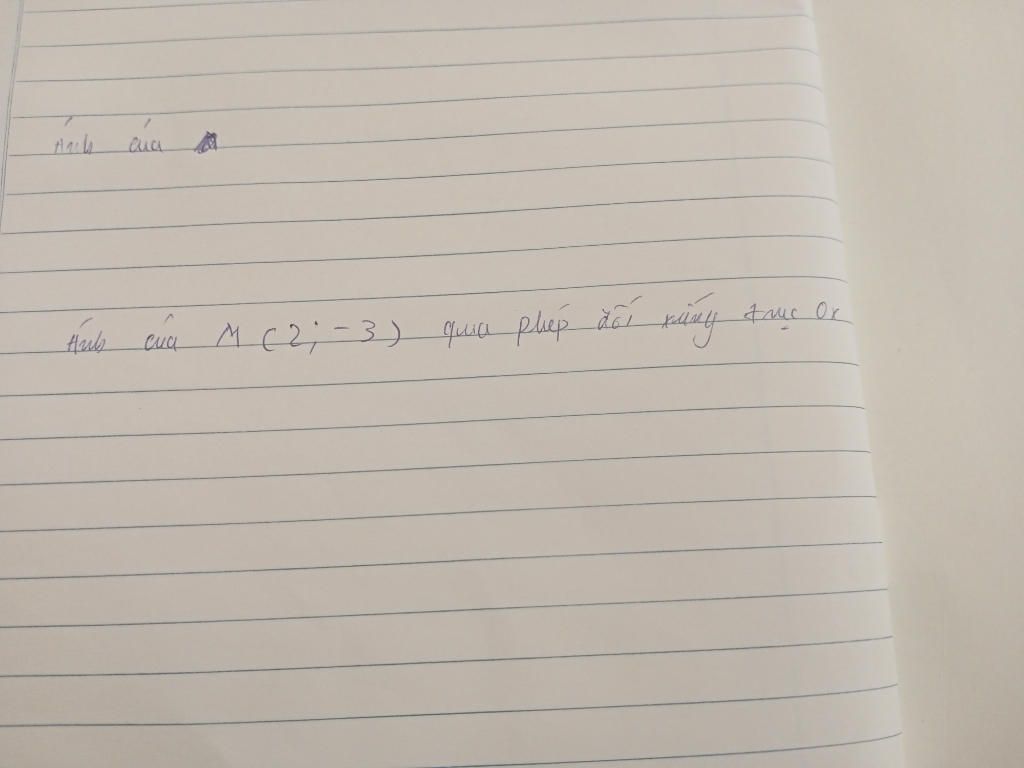 Ảnh của
Ảnh của M (2; -3) qua phép đối xứng trục Ox